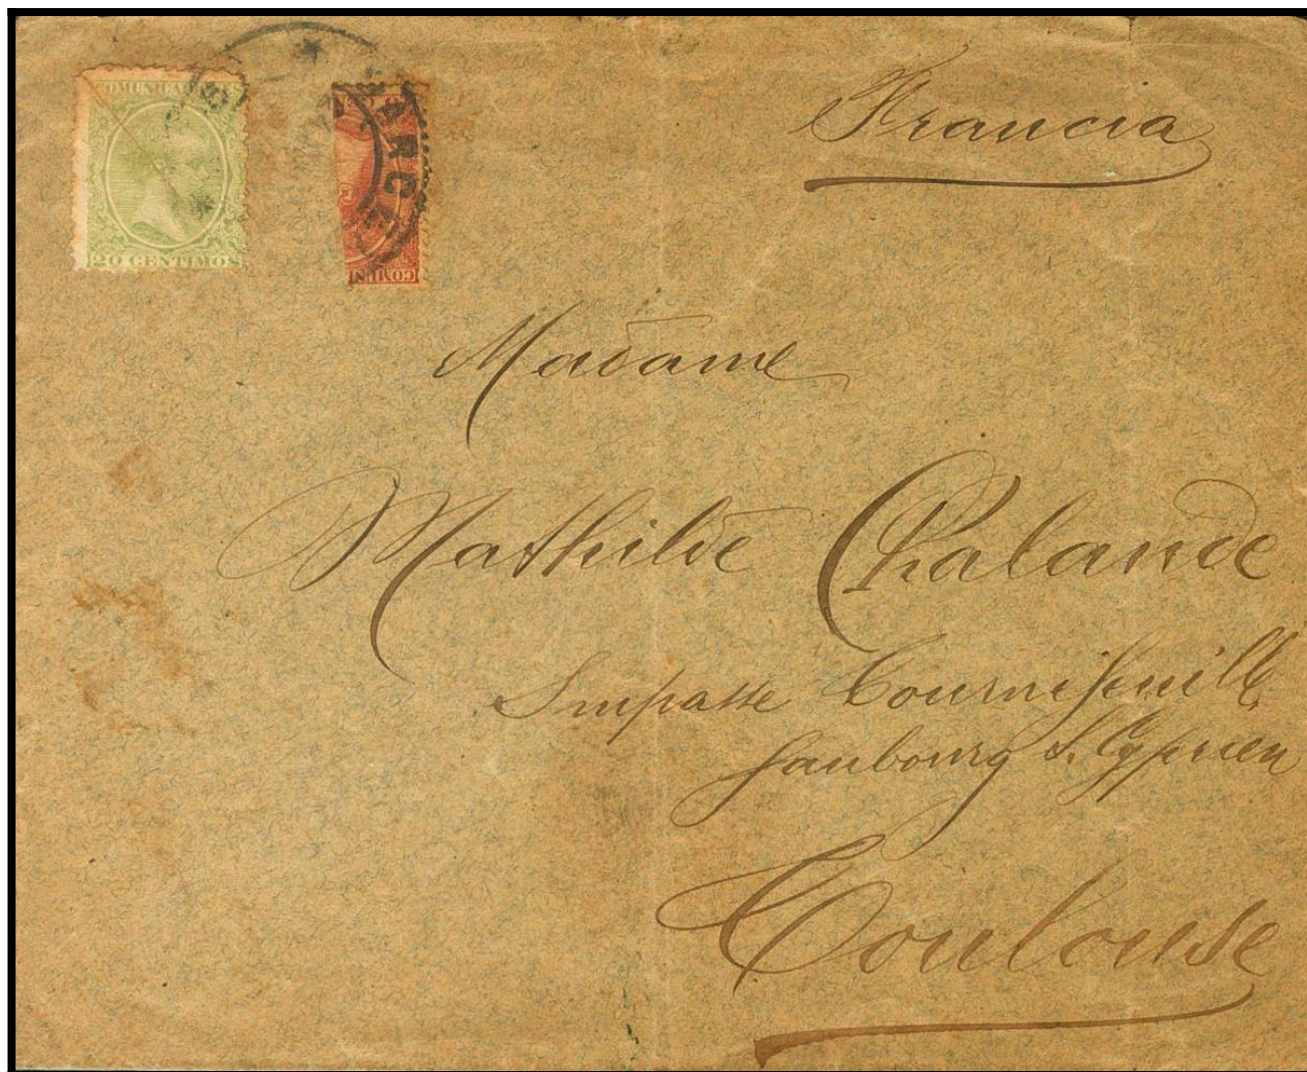 COMUNICACIONES
20 CENTIMOS
COMUNI
BARCEL
Francia
Madame
Mathilde Chalande
Impasse Tournefeuille
faubourg St. Cyprien
Toulouse